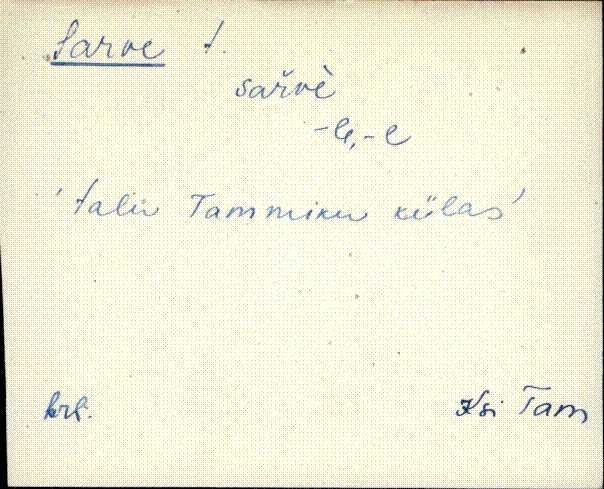 Sarve t.
sařvè
-le, -e
'talu Tammiku külas'
krl.
Ksi Tam